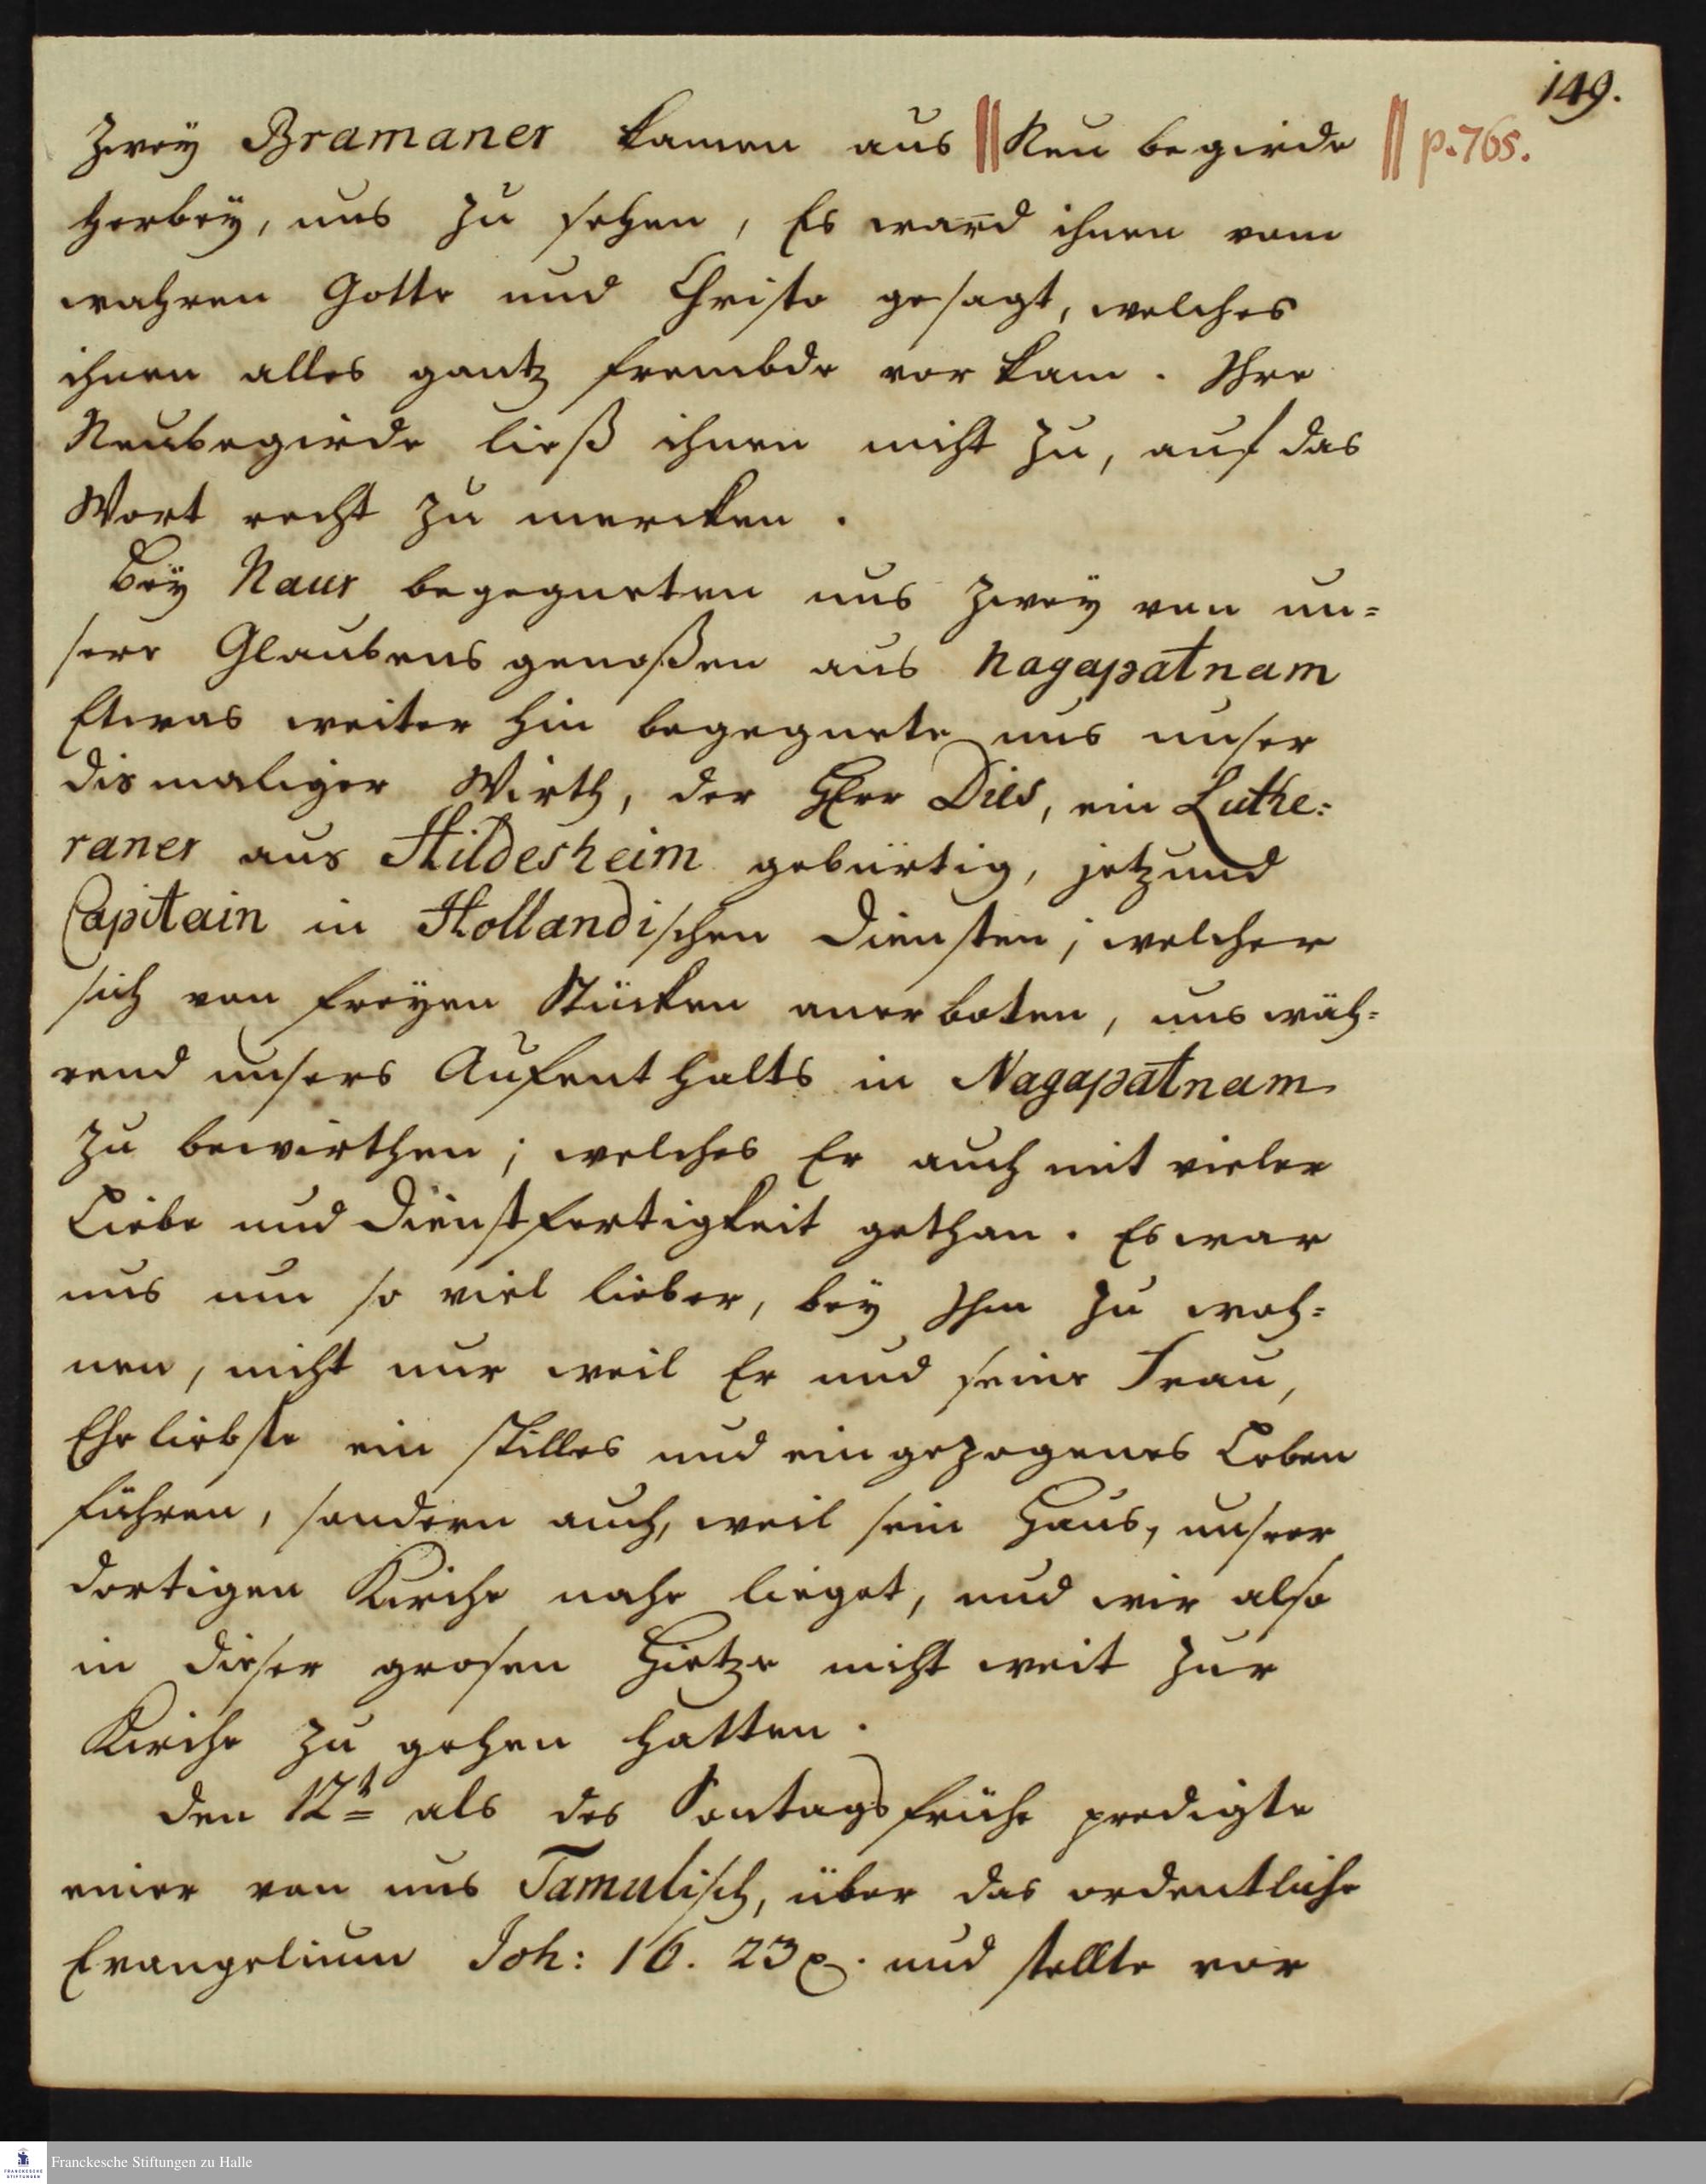 149.
Zwey Bramaner kamen aus || Neu begierde || p. 765.
herbey, uns zu sehen, Es ward ihnen vom
wahren Gotte und Christo gesagt, welches
ihnen alles gantz frembde vor kam. Ihre
Neubegierde ließ ihnen nicht zu, auf das
Wort recht zu mercken.
Bey Naur begegneten uns zwey von un=
sere Glaubens genoßen aus Nagapatnam
Etwas weiter hin begegnete uns unser
dismaliger Wirth, der HErr Dils, ein Luthe:
raner aus Hildesheim gebürtig, jetzund
Capitain in Hollandischen Diensten; welcher
sich von freyen Stücken anerboten, uns wäh=
rend unsers Aufenthalts in Nagapatnam
zu bewirthen; welches Er auch mit vieler
Liebe und Dienstfertigkeit gethan. Es war
uns um so viel lieber, bey Ihm zu woh=
nen, nicht nur weil Er und seine Frau,
Eheliebste ein stilles und eingezogenes Leben
führen, sondern auch, weil sein Haus, unserer
dortigen Kirche nahe lieget, und wir also
in dieser grosen Hietze nicht weit zur
Kirche zu gehen hatten.
Den 12t als des Sontags frühe predigte
einer von uns Tamulisch, über das ordentliche
Evangelium Joh: 16. 23 x. und stellte vor
Franckesche Stiftungen zu Halle
FRANCKESCHE STIFTUNGEN